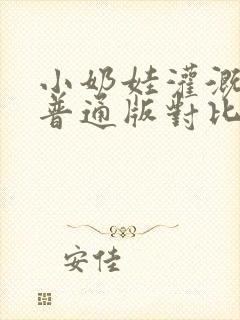 小奶娃灌溉
普通版對比
安佳